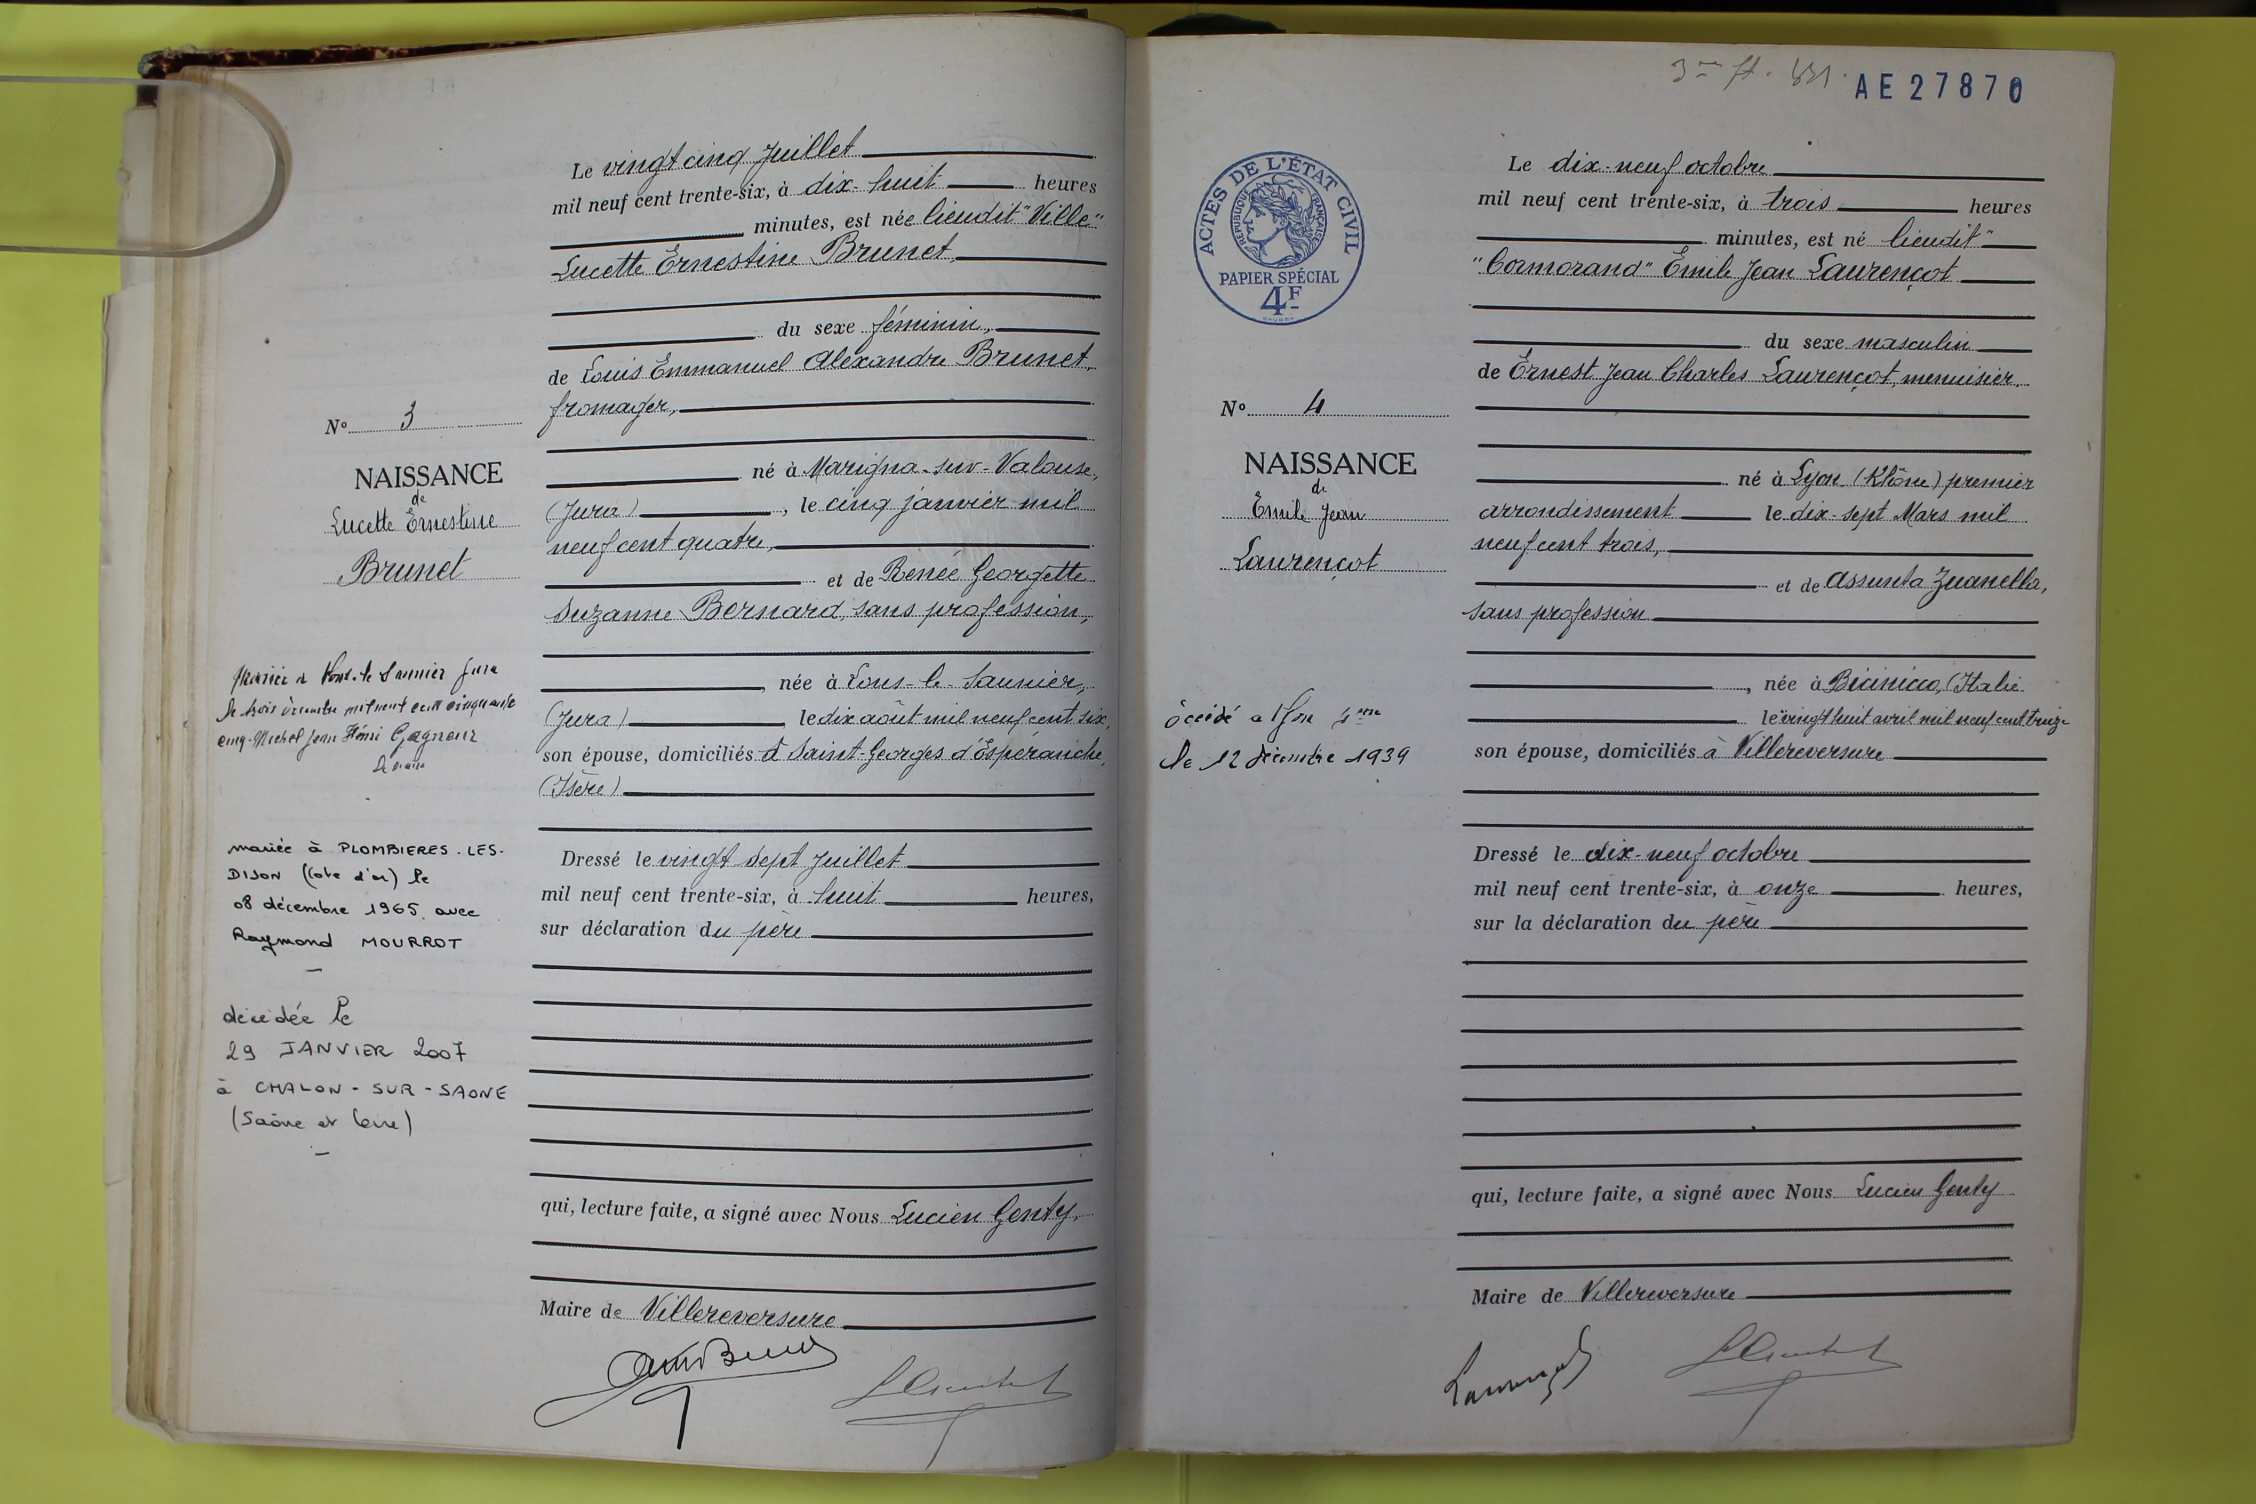 Le vingt cinq Juillet
mil neuf cent trente-six, à dix-huit heures
minutes, est née lieudit "Ville"
Lucette Ernestine Brunet,
du sexe féminin,
de Louis Emmanuel Alexandre Brunet,
fromager,
né à Marigna-sur-Valouse,
(Jura), le cinq janvier mil
neuf cent quatre,
et de Renée Georgette
Suzanne Bernard, sans profession,
née à Lons-le-Saunier,
(Jura) le dix août mil neuf cent six,
son épouse, domiciliés à Saint-Georges d'Espéranche,
(Isère)
Dressé le vingt sept Juillet
mil neuf cent trente-six, à huit heures,
sur déclaration du père
qui, lecture faite, a signé avec Nous Lucien Genty,
Maire de Villereversure
No 3
NAISSANCE
de
Lucette Ernestine
Brunet
Mariée à Lons-le Saunier Jura
le trois décembre mil neuf cent cinquante
cinq. Michel Jean Gagneur
mariée à PLOMBIERES-LES-
DIJON (Cote d'or) le
08 décembre 1965 avec
Raymond MOURROT
décédée le
29 JANVIER 2007
à CHALON-SUR-SAONE
(Saône et Loire)
AE27870
ACTES DE L'ÉTAT CIVIL
RÉPUBLIQUE FRANÇAISE
PAPIER SPÉCIAL
4F
Le dix-neuf octobre
mil neuf cent trente-six, à trois heures
minutes, est né lieudit
"Cormorand" Émile Jean Laurençot
du sexe masculin
de Ernest Jean Charles Laurençot, menuisier
né à Lyon (Rhône) premier
arrondissement le dix-sept Mars mil
neuf cent trois,
et de Assunta Zuanella,
sans profession
née à Bicinicco, (Italie
le vingt huit avril mil neuf cent treize
son épouse, domiciliés à Villereversure
Dressé le dix-neuf octobre
mil neuf cent trente-six, à onze heures,
sur la déclaration du père
qui, lecture faite, a signé avec Nous Lucien Genty
Maire de Villereversure
No 4
NAISSANCE
de
Émile Jean
Laurençot
décédé à Lyon
le 12 décembre 1939